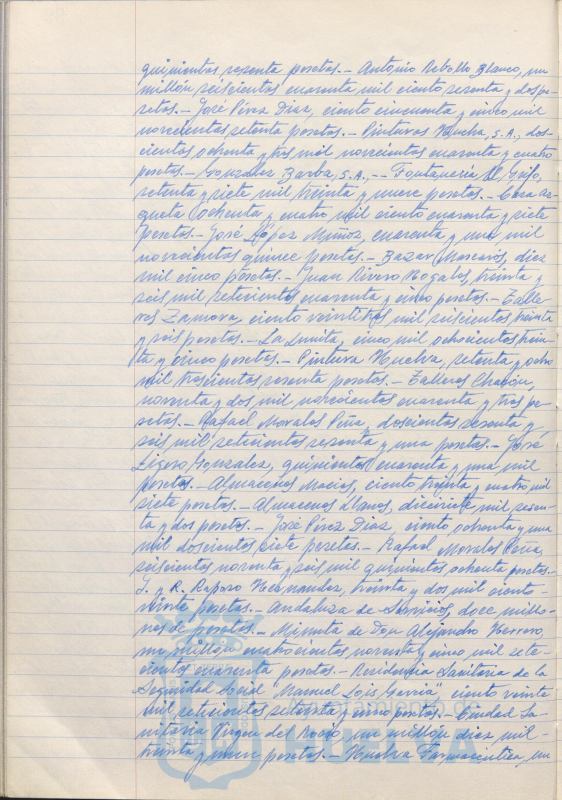 quinientas sesenta pesetas.- Antonio Rebollo Blanco, un
millón, seiscientas cuarenta mil ciento sesenta y dos pe-
setas.- José Pérez Diaz, ciento cincuenta y cinco mil
novecientas setenta pesetas.- Pinturas Huelva, S.A., dos-
cientas ochenta y tres mil novecientas cuarenta y cuatro
pesetas.- Gonzalez Barba, S.A., -- Fontaneria El Grifo,
setenta y siete mil treinta y nueve pesetas.- Casa
queta ochenta y cuatro mil ciento cuarenta y siete
pesetas.- José López Muñoz, cuarenta y una mil
novecientas quince pesetas.- Bazar Mascarós, diez
mil cinco pesetas.- Juan Rivero Nogales, treinta y
seis mil setecientas cuarenta y cinco pesetas.- Talle-
res Zamora, ciento veintitres mil seiscientas treinta
y seis pesetas.- La Lunita, cinco mil ochocientas trein-
ta y cinco pesetas.- Pintura Huelva, setenta y ocho
mil trescientas sesenta pesetas.- Talleres Chacón,
noventa y dos mil novecientas cuarenta y tres pe-
setas.- Rafael Morales Peña, doscientas sesenta y
seis mil setecientas sesenta y una pesetas.- José
Ligero Gonzalez, quinientas cuarenta y una mil
pesetas.- Almacenes Macias, ciento treinta y cuatro mil
siete pesetas.- Almacenes Llanos, diecisiete mil sesen-
ta y dos pesetas.- José Pérez Diaz, ciento ochenta y una
mil doscientas siete pesetas.- Rafael Morales Peña,
seiscientas noventa y seis mil quinientas ochenta pesetas.-
J. y R. Raposo Hernandez, treinta y dos mil ciento
veinte pesetas.- Andaluza de Servicios, doce millo-
nes de pesetas.- Minuta de Don Alejandro Herrero,
un millón cuatrocientas noventa y cinco mil sete-
cientas cuarenta pesetas.- Residencia Sanitaria de la
Seguridad Social "Manuel Lois García", ciento veinte
mil setecientas setenta y cinco pesetas.- Ciudad Sa-
nitaria Virgen del Rocio, un millón diez mil
treinta y nueve pesetas.- Huelva Farmacéutica, un
Ayuntamiento de
HUELVA